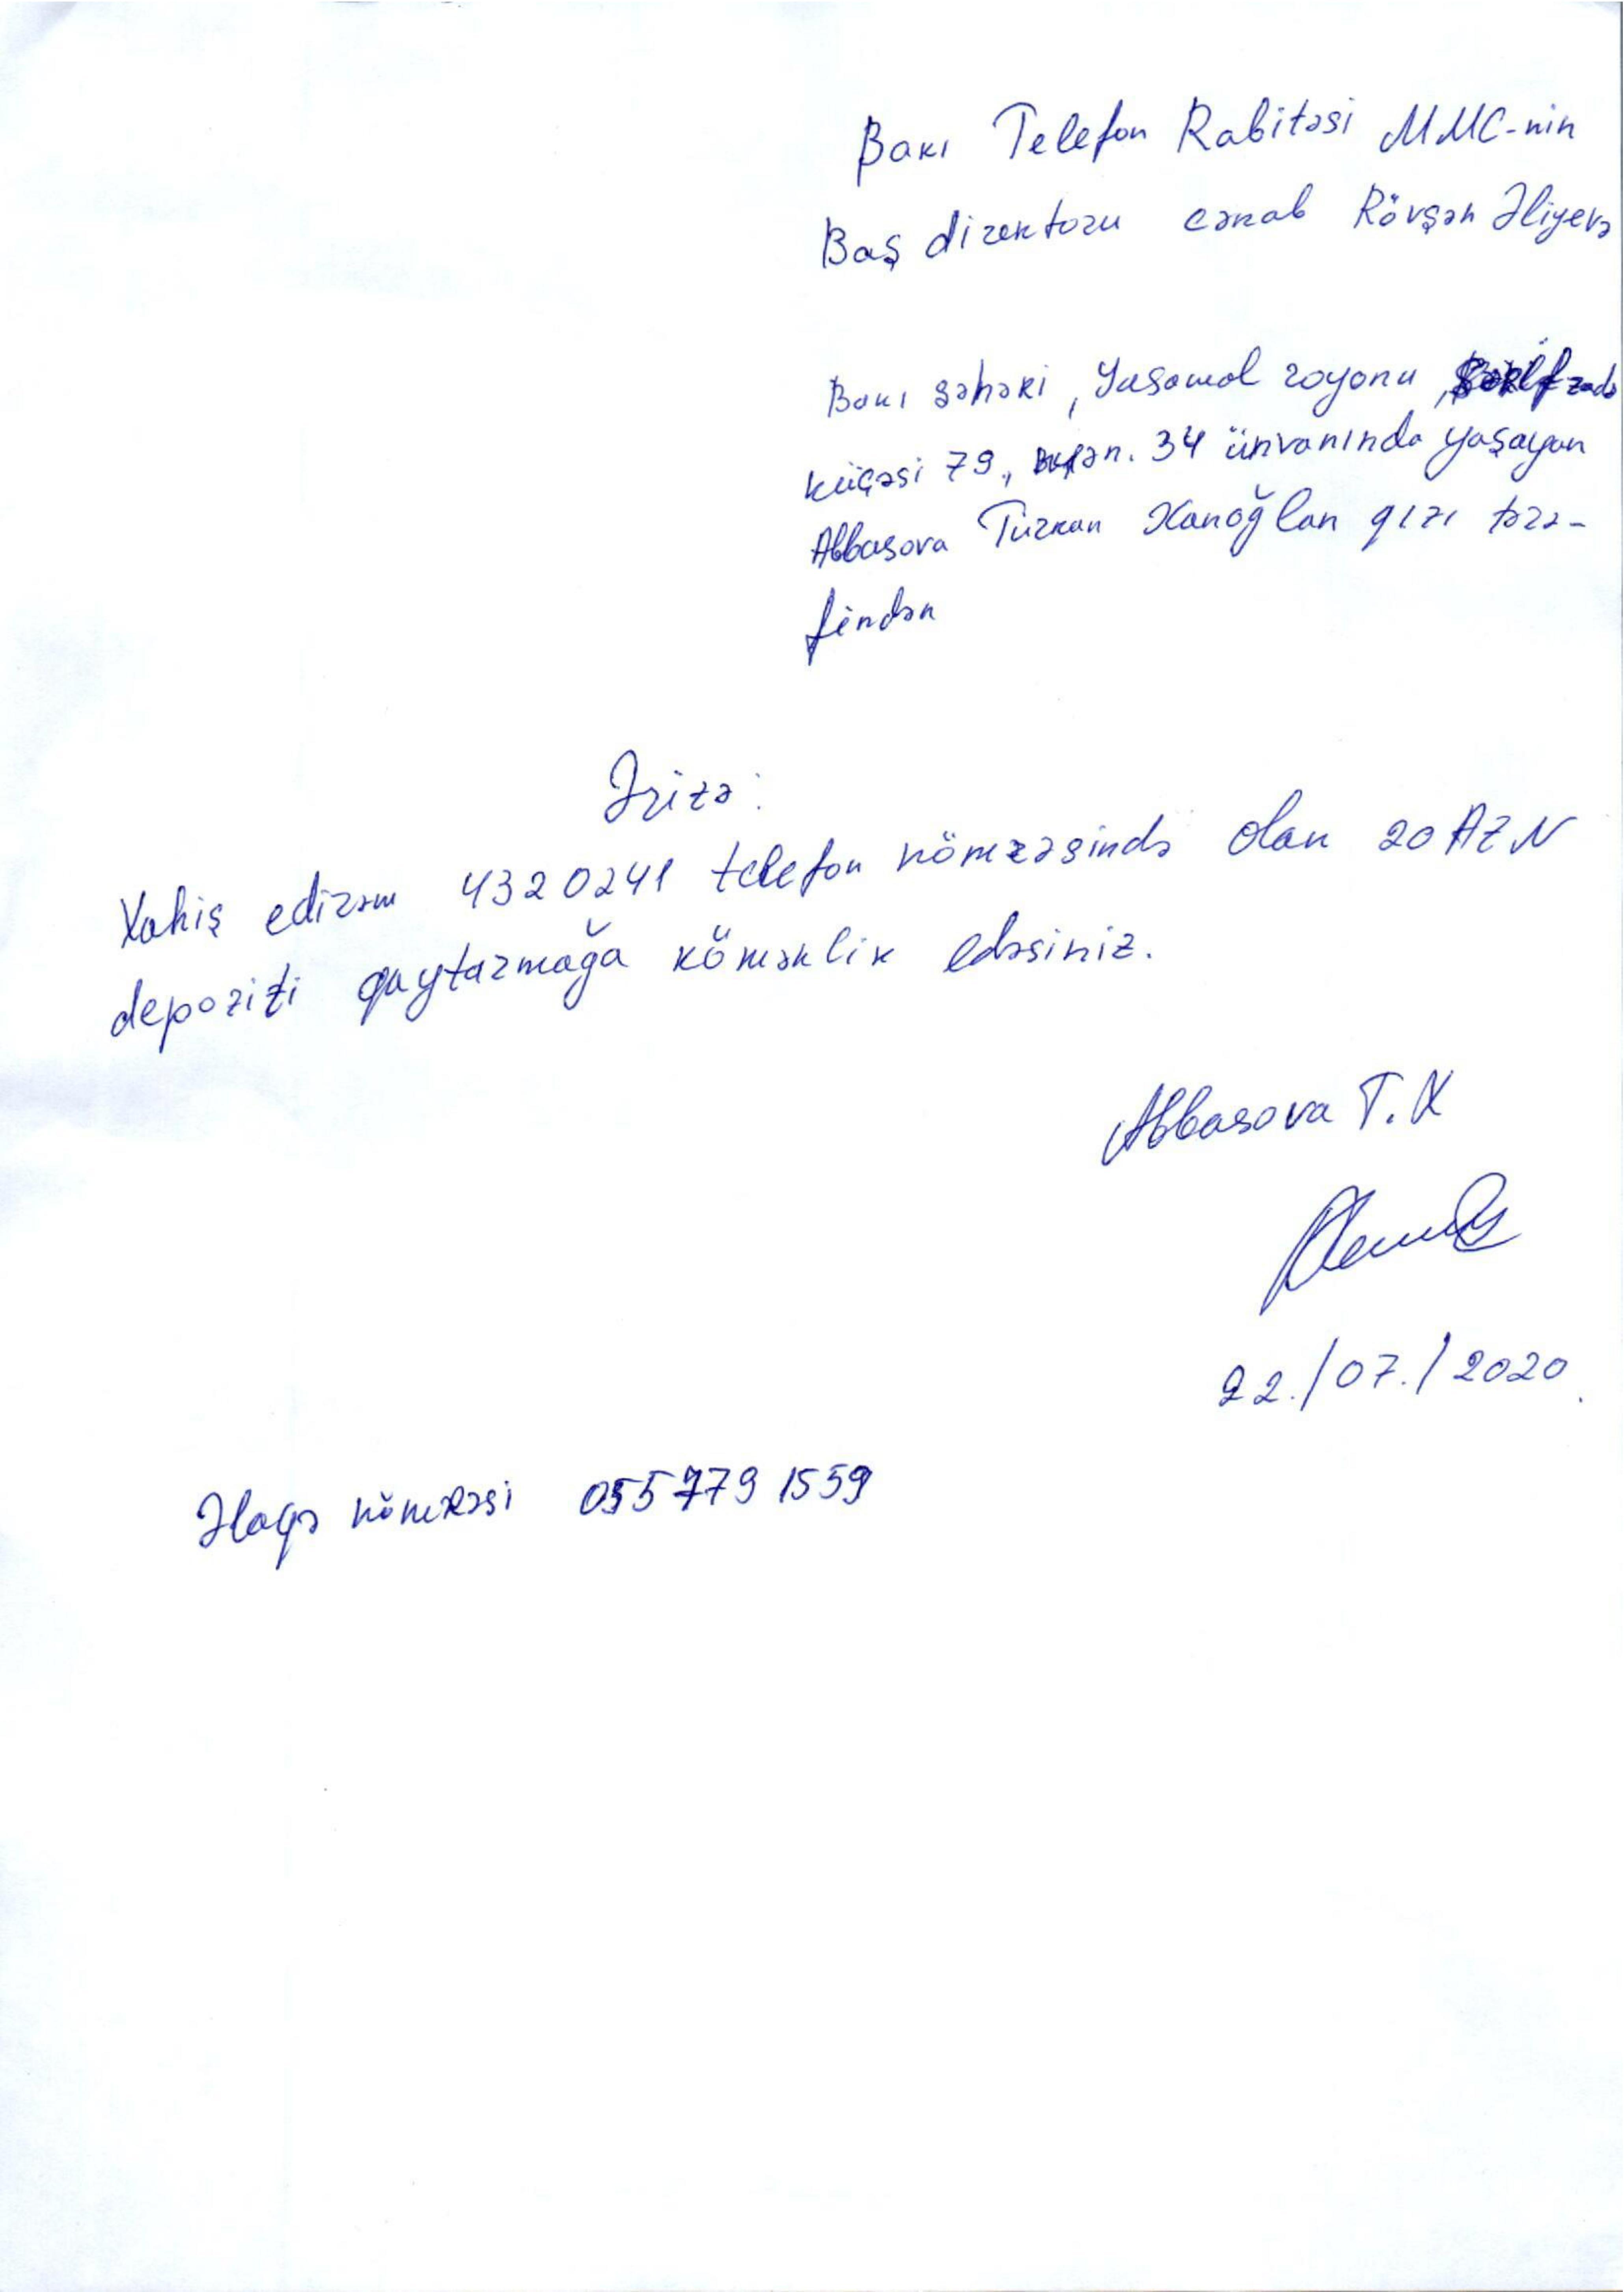 Bakı Telefon Rabitəsi MMC-nin
Baş direktoru cənab Rövşən Əliyevə
Bakı şəhəri, Yasamal rayonu, zadə
küçəsi 79, mən. 34 ünvanında yaşayan
Abbasova Türkan Xanoğlan qızı tərə-
findən
Ərizə:
Xahiş edirəm 4320241 telefon nömrəsində olan 20 AZN
depoziti qaytarmağa köməklik edəsiniz.
Abbasova T.X
22./07./2020.
Əlaqə nömrəsi 055 779 1559